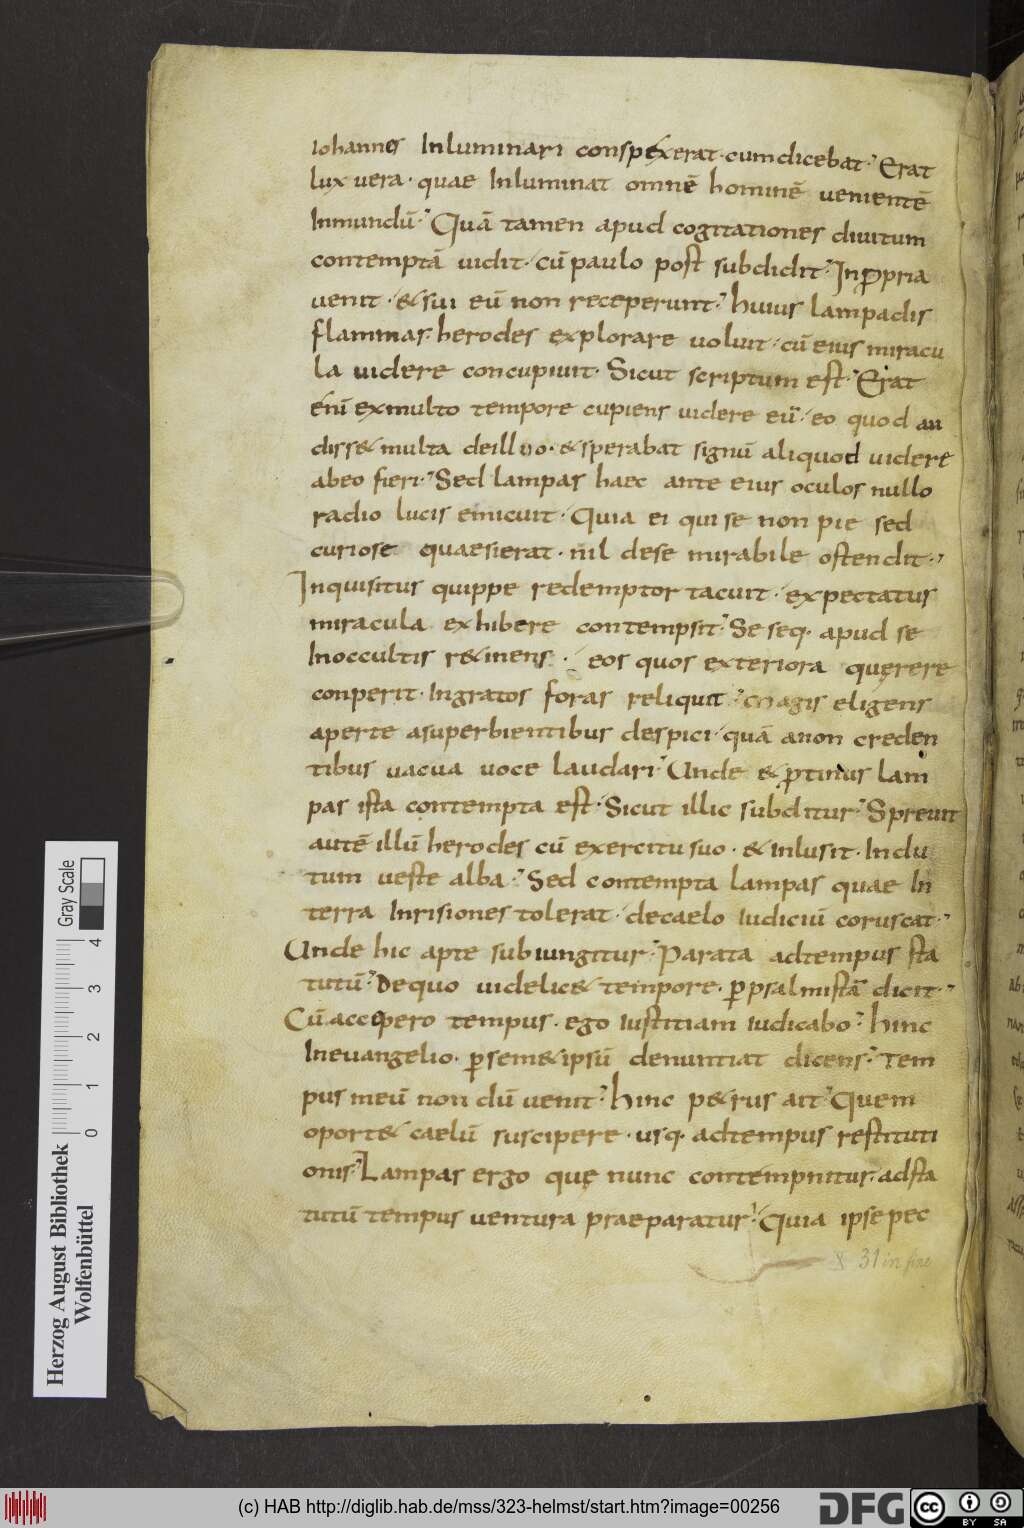 Iohannes Inluminari conspexerat · cum dicebat · Erat
lux vera · quae Inluminat omnē hominē venientē
Inmundū · Quā tamen apud cogitationes divitum
contemptā vidit · cū paulo post subdidit · In ꝓpria
venit · & sui eū non receperunt · huius lampadis
flammas · herodes explorare voluit · cū eius miracu
la videre concupivit · Sicut scriptum est · Erat
enī ex multo tempore cupiens videre eū · eo quod au
diss& multa de illuo · & sperabat signū aliquod videre
ab eo fieri · Sed lampas haec ante eius oculos nullo
radio lucis emicuit · Quia ei qui se non pie sed
curiose quaesierat · nil de se mirabile ostendit ·
Inquisitus quippe redemptor tacuit · expectatus
miracula exhibere contempsit · Se seq· apud se
Inoccultis r&inens · eos quos exteriora querere
conperit · Ingratos foras reliquit · Magis eligens
aperte a superbientibus despici · quā a non creden
tibus vacua voce laudari · Unde & ꝓtinus lam
pas ista contempta est · Sicut illic subditur · Sprevit
autē illū herodes cū exercitu suo · & inlusit · Indu
tum veste alba · Sed contempta lampas quae In
terra Inrisiones tolerat · de caelo Iudiciū coruscat ·
Unde hic apte subiungitur · Parata ad tempus sta
tutū · De quo videlic& tempore · ꝑ psalmistā dicit ·
Cū accepero tempus · ego Iustitiam Iudicabo · hinc
In evangelio · ꝑ sem&ipsū denuntiat dicens · Tem
pus meū non dū venit · hinc p&rus ait · Quem
oport& caelū suscipere · usq· ad tempus restituti
onis · Lampas ergo que nunc contempnitur · ad sta
tutū tempus ventura praeparatur · Quia ipse pec
31 in fine
Herzog August Bibliothek
Wolfenbüttel
0 1 2 3 4
Gray Scale
(c) HAB http://diglib.hab.de/mss/323-helmst/start.htm?image=00256
DFG
cc BY SA